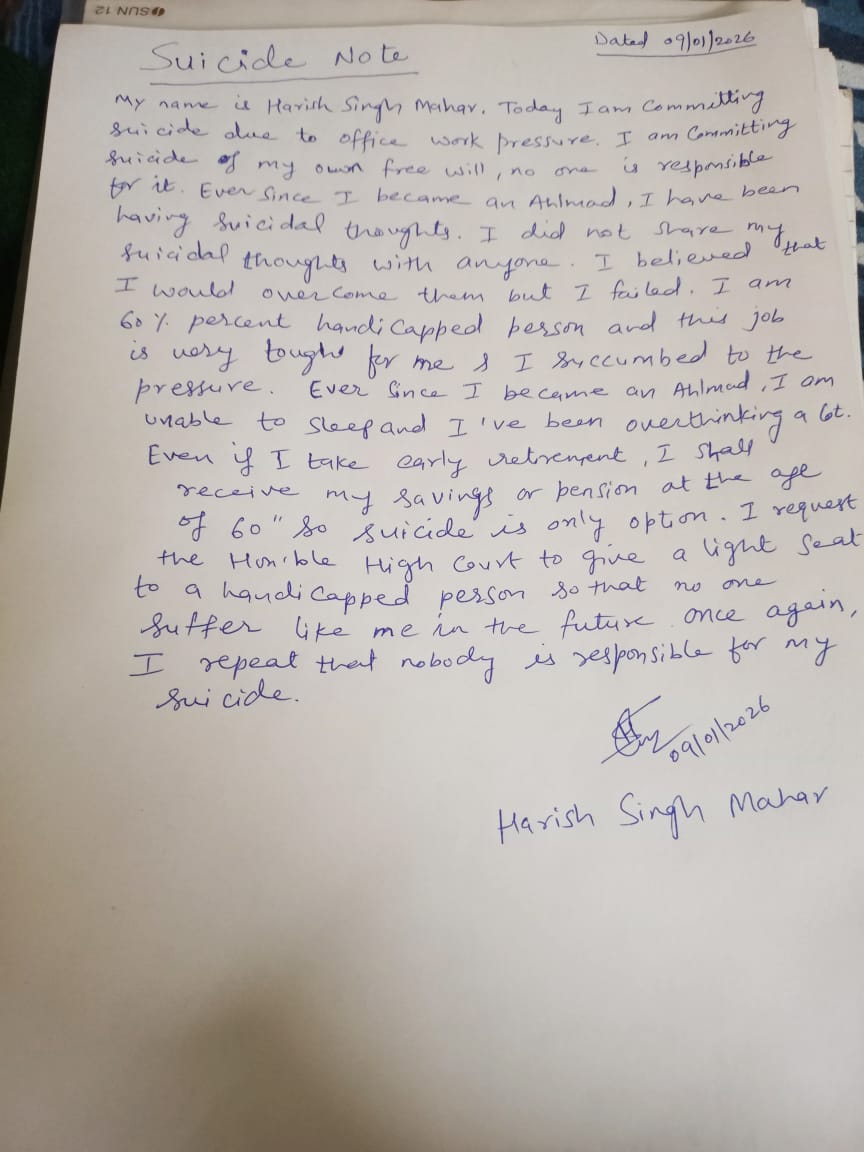 SUN 12
Suicide Note
Dated 09/01/2026
My name is Harish Singh Mahar. Today I am Committing
suicide due to office work pressure. I am Committing
suicide of my own free will, no one is responsible
for it. Ever Since I became an Ahlmad, I have been
having suicidal thoughts. I did not share my
suicidal thoughts with anyone. I believed that
I would overcome them but I failed. I am
60% percent handicapped person and this job
is very tought for me & I succumbed to the
pressure. Ever Since I became an Ahlmad, I am
unable to sleep and I've been overthinking a lot.
Even if I take early retirement, I shall
receive my savings or pension at the age
of 60" so suicide is only option. I request
the Hon'ble High Court to give a light seat
to a handicapped person so that no one
suffer like me in the future. once again,
I repeat that nobody is responsible for my
suicide.
09/01/2026
Harish Singh Mahar